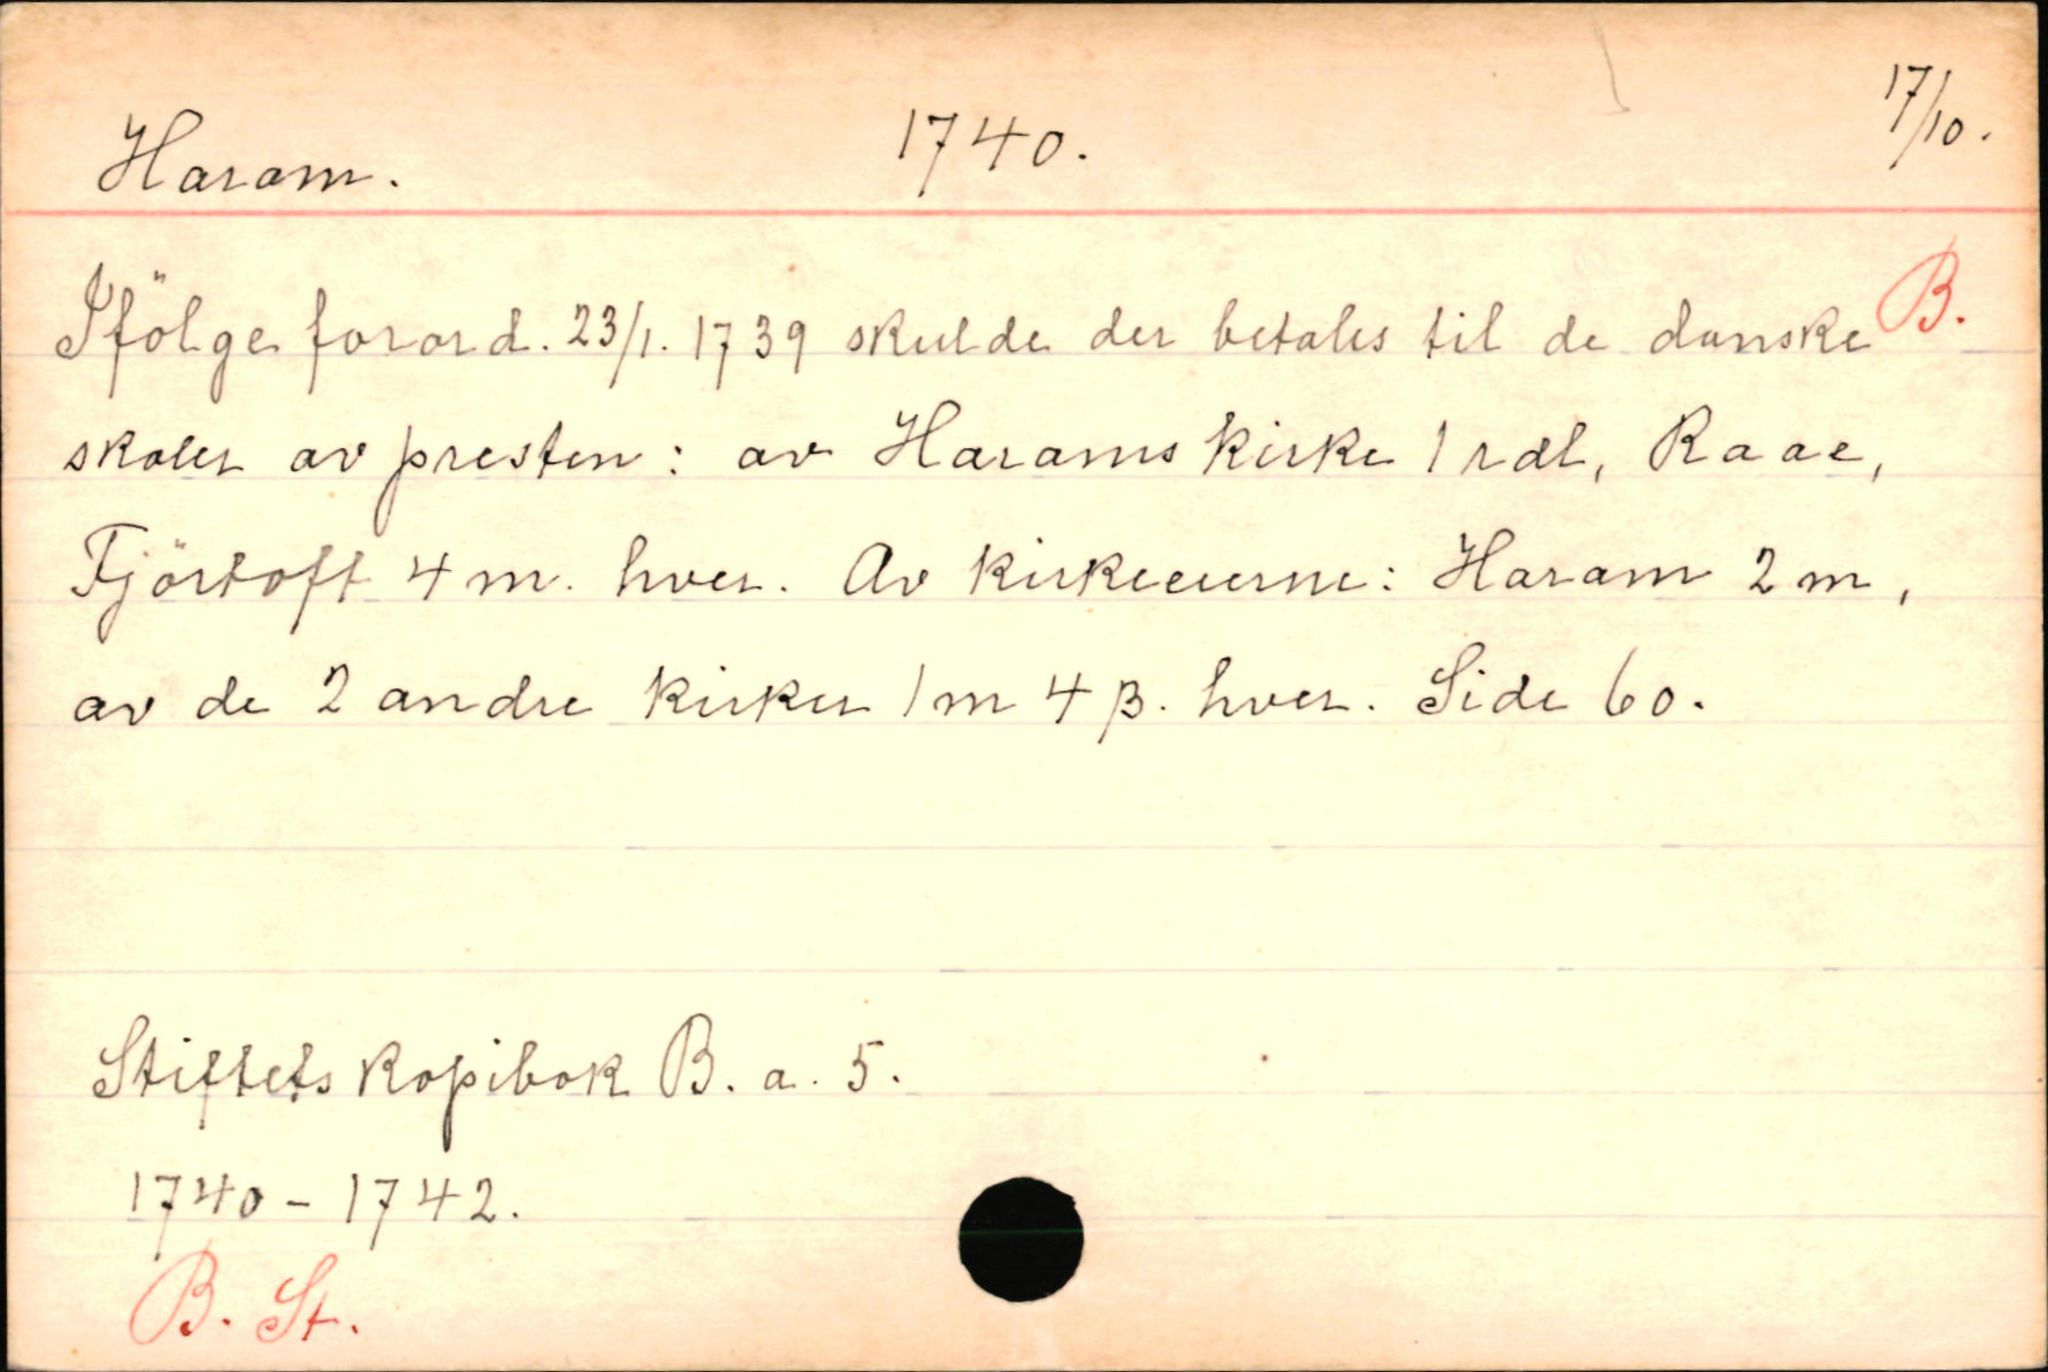 Haram. 1740. 17/10.
Ifölge forord. 23/1. 1739 skulde der betales til de danske B.
skoler av presten: av Harams kirke 1 rdl, Raae,
Fjörtoft 4 m. hver. Av kirkeeierne: Haram 2 m,
av de 2 andre kirker 1 m 4 β. hver. Side 60.
Stiftets kopibok B. a. 5.
1740-1742.
B. St.